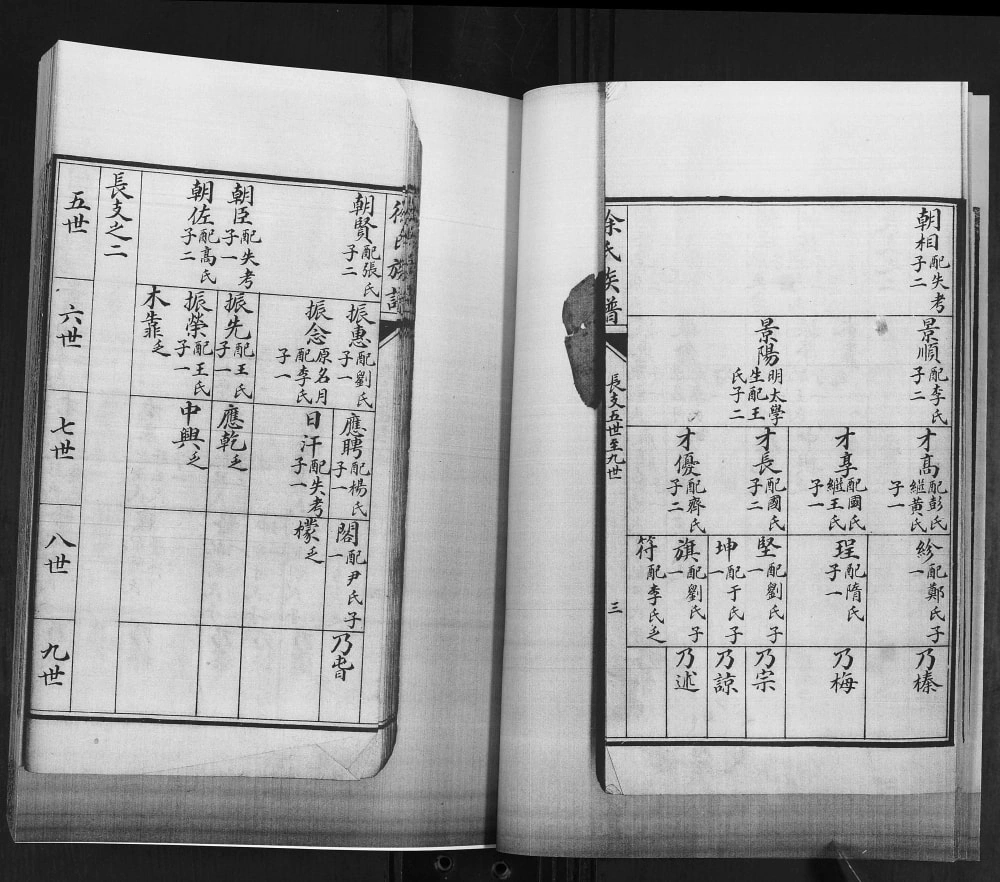 朝相配失考
子二
景順配李氏
子二
景陽明太學
生配王
氏子二
才高配彭氏
繼黃氏
子一
才享配國氏
繼王氏
子一
才長配國氏
子二
才優配齊氏
子二
紾配鄭氏子
一
珵配隋氏
子一
堅配劉氏子
一
坤配于氏子
一
旗配劉氏子
一
符配李氏乏
乃榛
乃梅
乃宗
乃諒
乃述
徐氏族譜
長支五世至九世
三
徐氏族譜
朝賢配張氏
子二
朝臣配失考
子一
朝佐配高氏
子二
振惠配劉氏
子一
振念原名月
配李氏
子一
振先配王氏
子一
振榮配王氏
子一
木乏
應聘配楊氏
子一
日汗配失考
子一
應乾乏
中興乏
閣配尹氏子
一
檬乏
乃
長支之二
五世
六世
七世
八世
九世